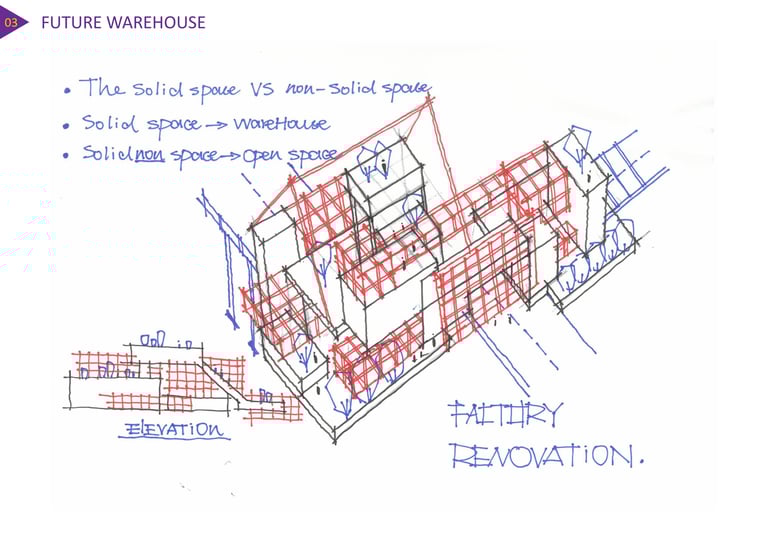 03 FUTURE WAREHOUSE
• The Solid space VS non-solid space
• Solid space → WareHouse
• Solid non space → open space
ELEVATION
FACTORY
RENOVATION.